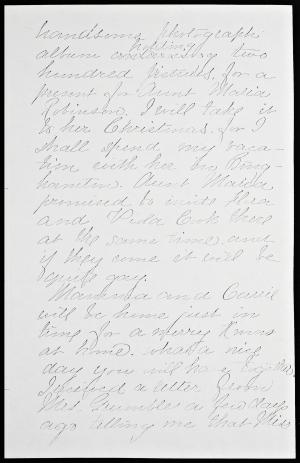 handsome photograph
album holding two
hundred pictures, for a
present for Aunt Maria
Robinson. I will take it
to her Christmas, for I
shall spend my vaca-
tion with her in Bing-
hamton. Aunt Maria
promised to invite
and Cook there
at the same time and
if they come it will be
quite gay.
Mamma and Carrie
will be home just in
time for a merry Xmas
at home. What a nice
day you will have together.
I received a letter from
Mrs. Grumbles a few days
ago telling me that Miss